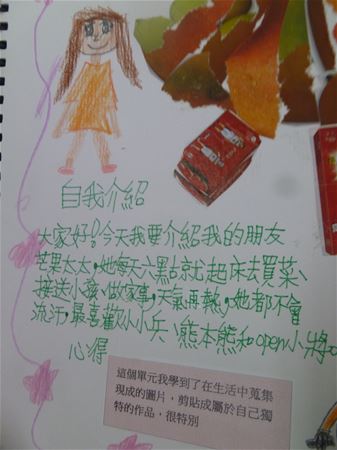 自我介紹
大家好!今天我要介紹我的朋友
芒果太太,她每天六點就起床去買菜、
接送小孩、做家事,天氣再熱,她都不會
流汗,最喜歡小小兵、熊本熊和open小將。
心得
這個單元我學到了在生活中蒐集
現成的圖片,剪貼成屬於自己獨
特的作品,很特別